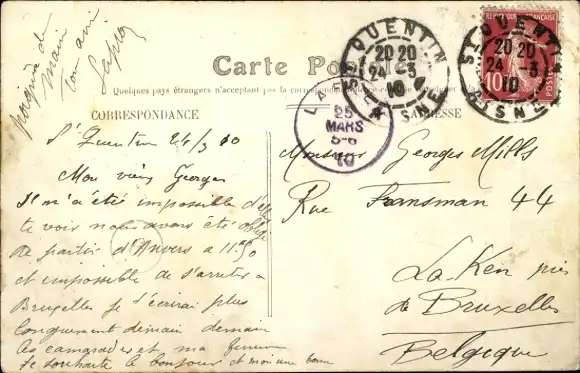 Poignée de
main
Ton ami
Carte Postale
Quelques pays étrangers n'acceptent pas la correspondance
CORRESPONDANCE
ADRESSE
ST QUENTIN
20 20
24 - 3
10
AISNE
ST QUENTIN
20 20
24 - 3
10
AISNE
10
POSTES
25
MARS
5-6
10
St Quentin 24/3 10
Mon vieux Georges
Il m'a été impossible d'
te voir nous avons été obligé
de partir d'Anvers a 11.50
et impossible de s'arreter a
Bruxelles je t'écrirai plus
longuement demain demain
les camarades et ma femme
te souhaite le bonjour et moi une bonne
Monsieur Georges Mills
Rue Fransman 44
La Ken près
de Bruxelles
Belgique